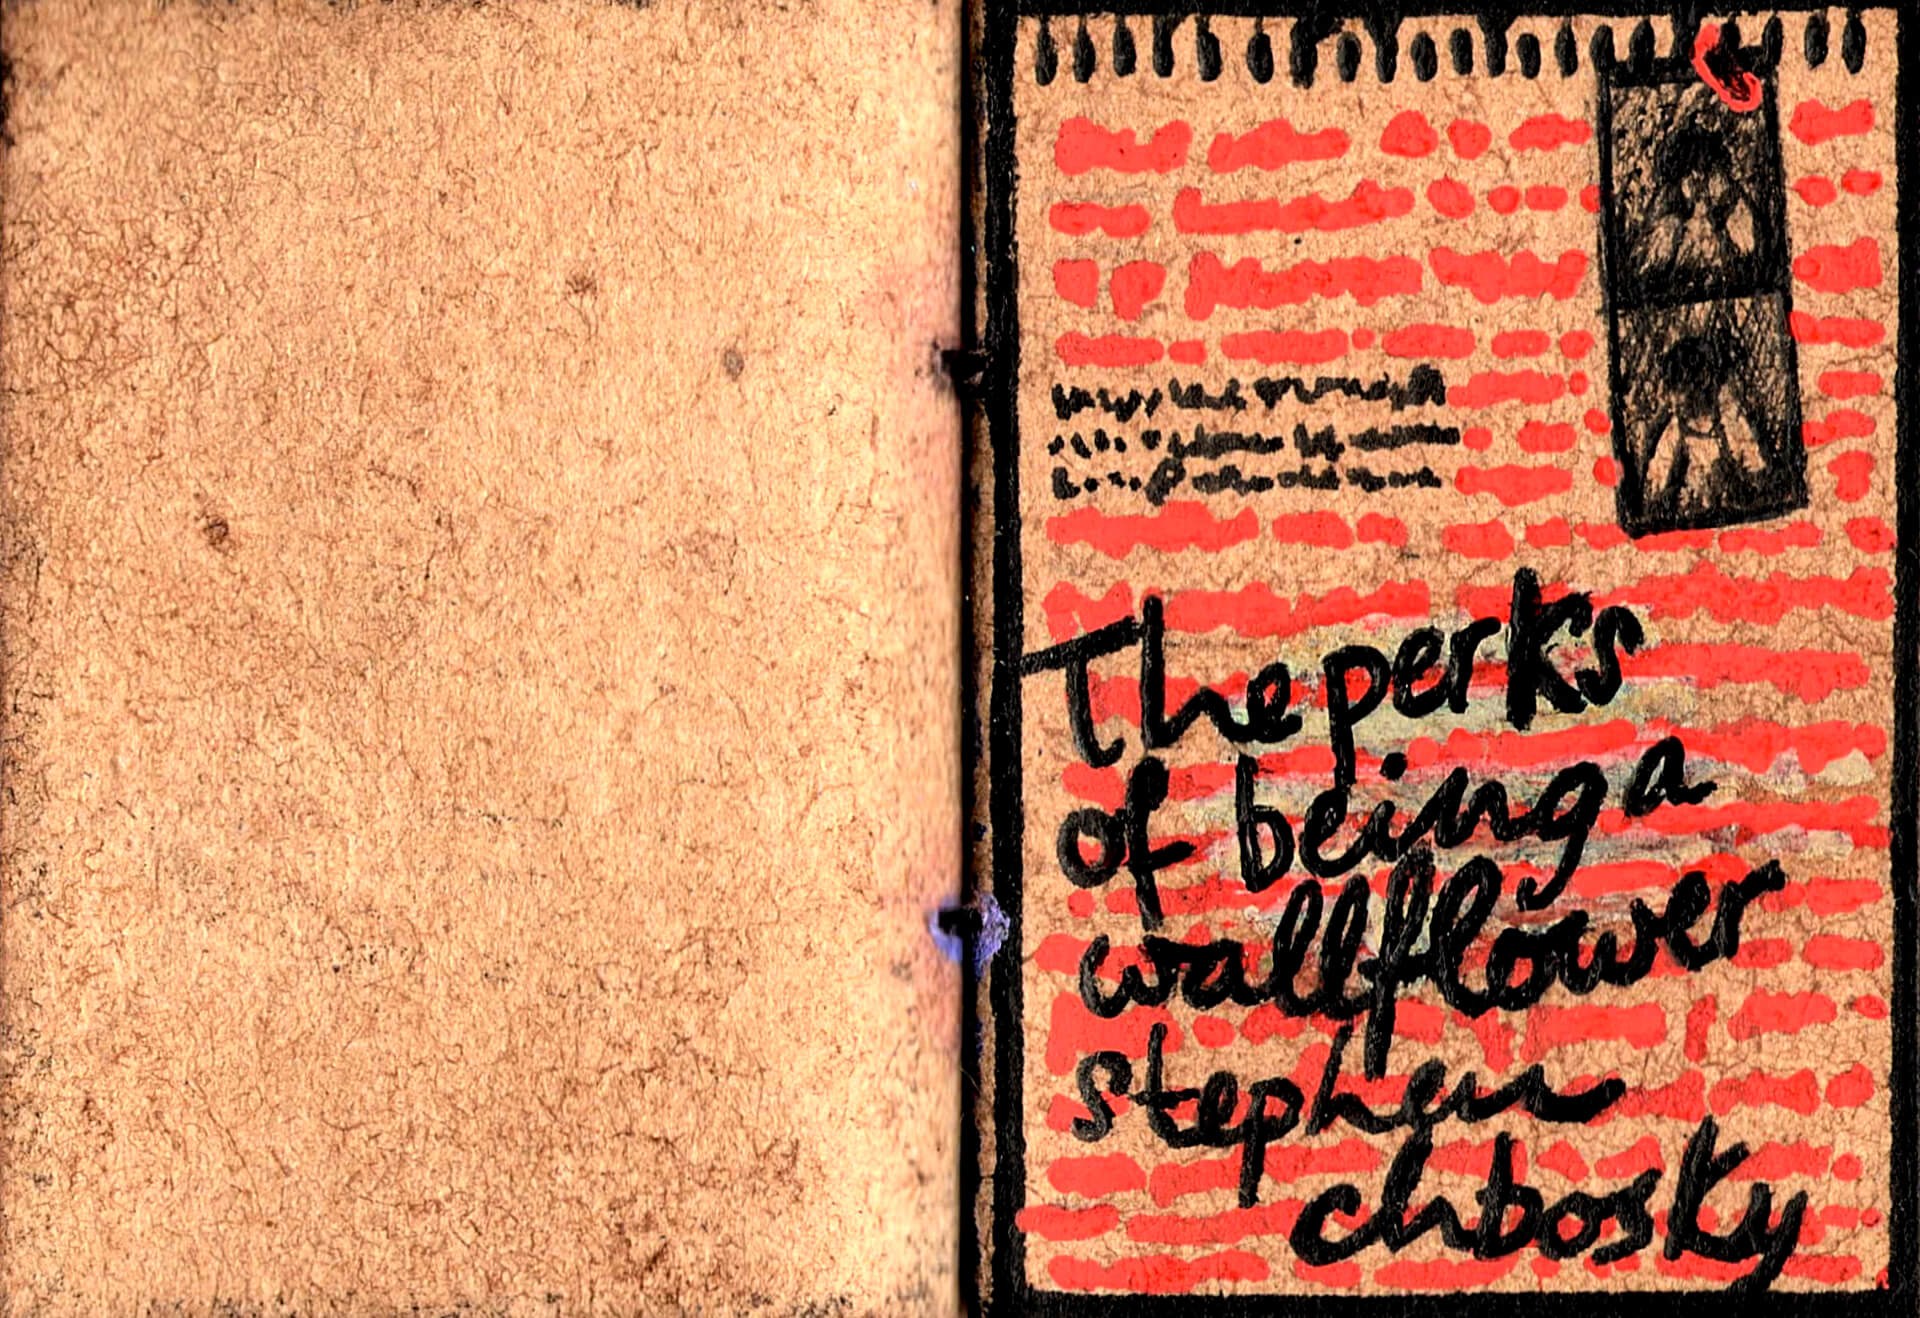 The perks
of being a
wallflower
stephen
chbosky